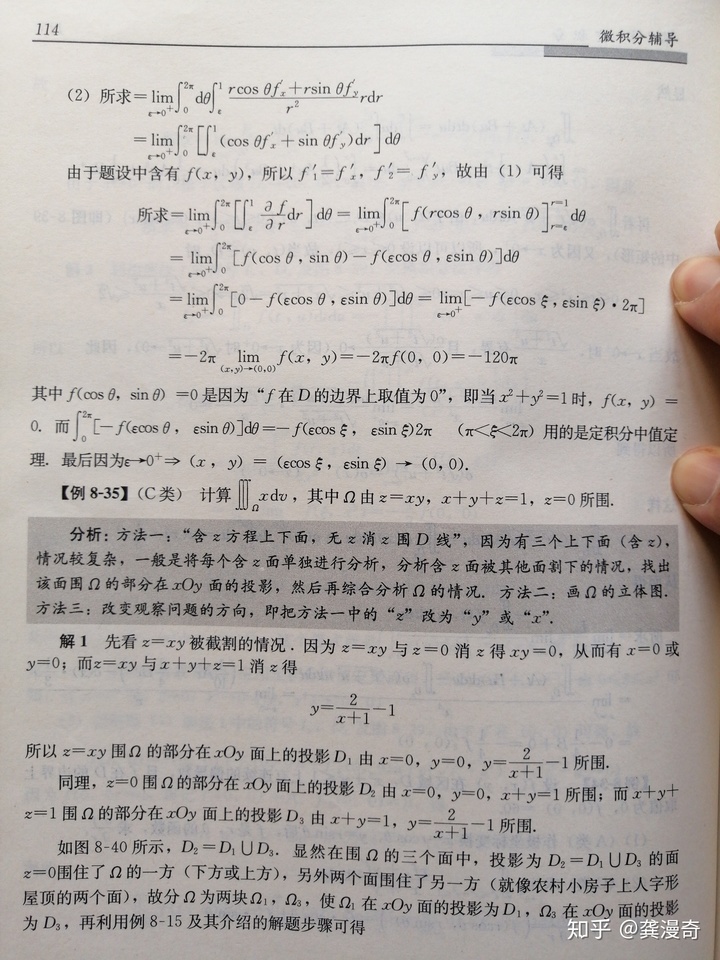 114
微积分辅导
(2) 所求=lim_{ε→0⁺}∫₀^{2π}dθ∫_ε^1 (rcos θf′ₓ+rsin θf′ᵧ)/r² rdr
=lim_{ε→0⁺}∫₀^{2π}[∫_ε^1(cos θf′ₓ+sin θf′ᵧ)dr]dθ
由于题设中含有 f(x, y), 所以 f′₁=f′ₓ, f′₂=f′ᵧ, 故由 (1) 可得
所求=lim_{ε→0⁺}∫₀^{2π}[∫_ε^1 ∂f/∂r dr]dθ=lim_{ε→0⁺}∫₀^{2π}[f(rcos θ, rsin θ)]_{r=ε}^{r=1}dθ
=lim_{ε→0⁺}∫₀^{2π}[f(cos θ, sin θ)-f(εcos θ, εsin θ)]dθ
=lim_{ε→0⁺}∫₀^{2π}[0-f(εcos θ, εsin θ)]dθ=lim_{ε→0⁺}[-f(εcos ξ, εsin ξ)·2π]
=-2π lim_{(x,y)→(0,0)} f(x, y)=-2πf(0, 0)=-120π
其中 f(cos θ, sin θ) =0 是因为“f 在 D 的边界上取值为 0”, 即当 x²+y²=1 时, f(x, y) =
0. 而∫₀^{2π}[-f(εcos θ, εsin θ)]dθ=-f(εcos ξ, εsin ξ)2π (π<ξ<2π) 用的是定积分中值定
理. 最后因为ε→0⁺⇒ (x, y) = (εcos ξ, εsin ξ) → (0, 0).
【例 8-35】(C 类) 计算∭_Ω xdv, 其中 Ω 由 z=xy, x+y+z=1, z=0 所围.
分析: 方法一: “含 z 方程上下面, 无 z 消 z 围 D 线”, 因为有三个上下面 (含 z),
情况较复杂, 一般是将每个含 z 面单独进行分析, 分析含 z 面被其他面割下的情况, 找出
该面围 Ω 的部分在 xOy 面的投影, 然后再综合分析 Ω 的情况. 方法二: 画 Ω 的立体图.
方法三: 改变观察问题的方向, 即把方法一中的 “z” 改为 “y” 或 “x”.
解 1 先看 z=xy 被截割的情况. 因为 z=xy 与 z=0 消 z 得 xy=0, 从而有 x=0 或
y=0; 而z=xy 与 x+y+z=1 消 z 得
y=2/(x+1)-1
所以 z=xy 围 Ω 的部分在 xOy 面上的投影 D₁ 由 x=0, y=0, y=2/(x+1)-1 所围.
同理, z=0 围 Ω 的部分在 xOy 面上的投影 D₂ 由 x=0, y=0, x+y=1 所围; 而 x+y+
z=1 围 Ω 的部分在 xOy 面上的投影 D₃ 由 x+y=1, y=2/(x+1)-1 所围.
如图 8-40 所示, D₂=D₁∪D₃. 显然在围 Ω 的三个面中, 投影为 D₂=D₁∪D₃ 的面
z=0围住了 Ω 的一方 (下方或上方), 另外两个面围住了另一方 (就像农村小房子上人字形
屋顶的两个面), 故分 Ω 为两块Ω₁, Ω₃, 使Ω₁ 在 xOy 面的投影为 D₁, Ω₃ 在 xOy 面的投影
为 D₃, 再利用例 8-15 及其介绍的解题步骤可得
知乎 @龚漫奇